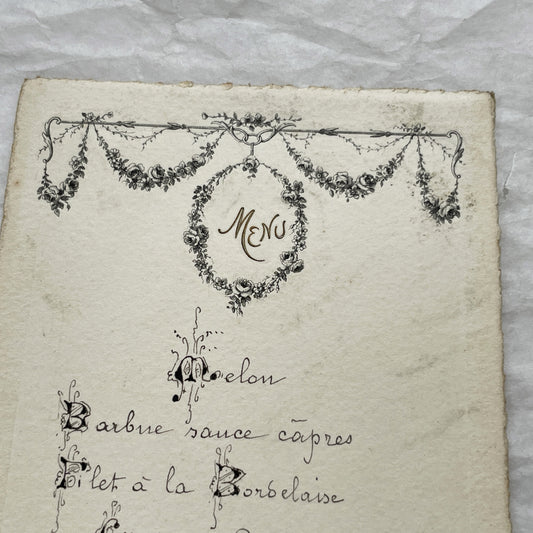 Menu
Melon
Barbue sauce câpres
Filet à la Bordelaise